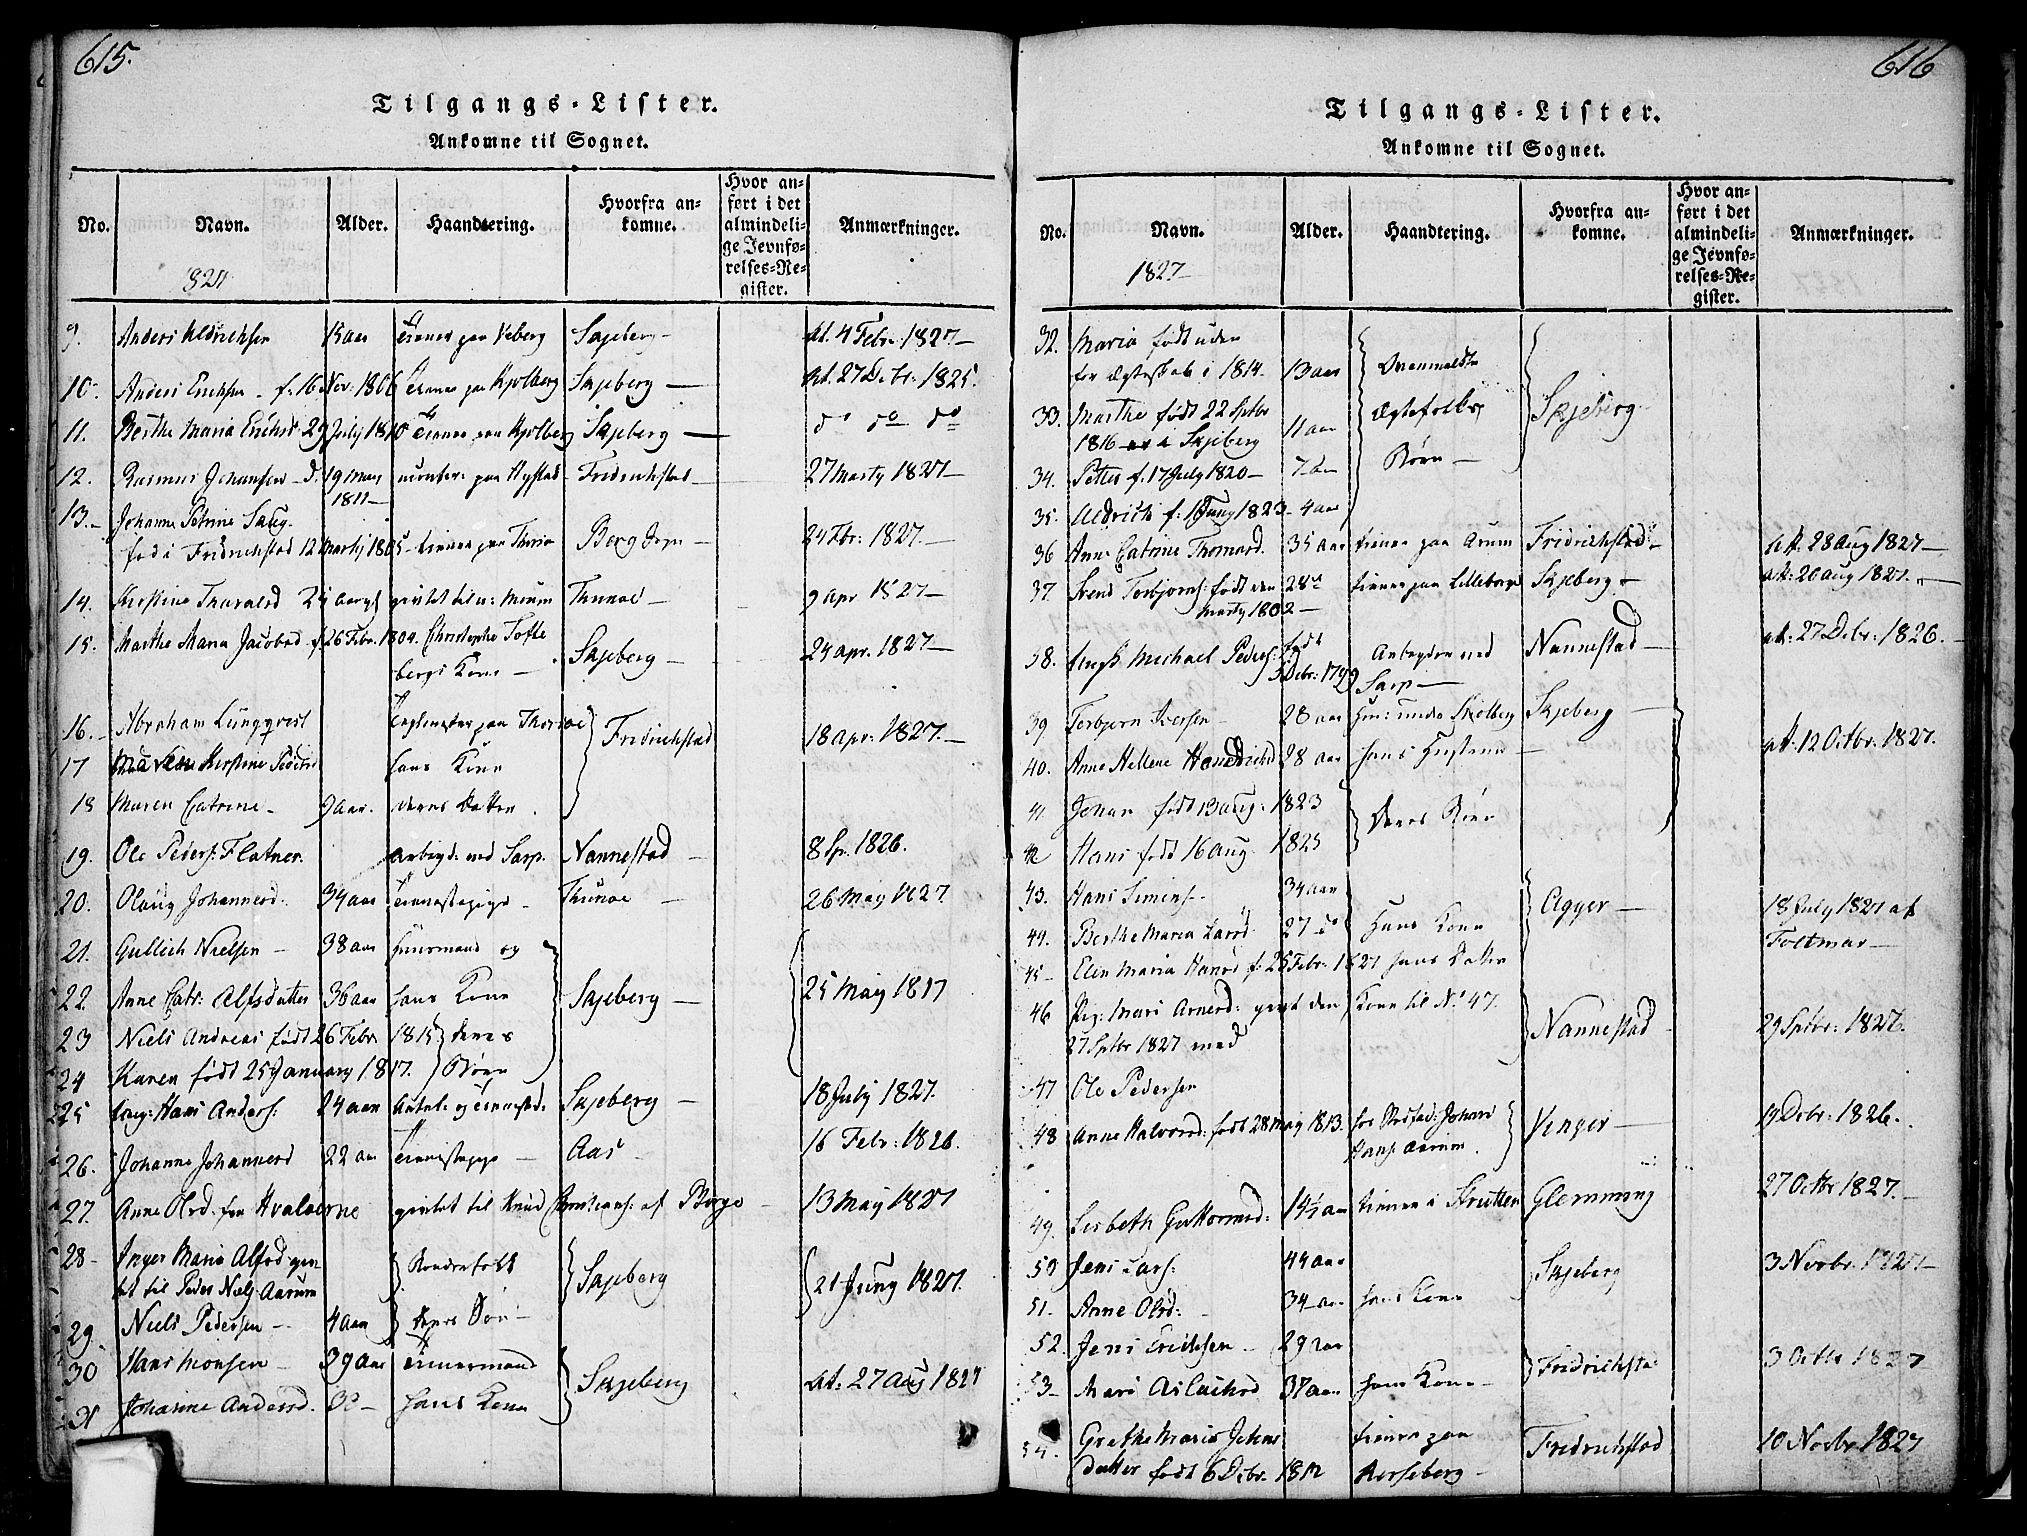 615.
Tilgangs-Lister.
Ankomne til Sognet.
No. Navn. Alder. Haandtering. Hvorfra ankomne. Hvor anført i det almindelige Jevnførelses-Register. Anmærkninger.
1827
9. Anders Aldrichsen 15 aar tienner paa Veberg Skjeberg at. 4 Febr: 1827
10. Anders Erichsen f. 16 Nov: 1806 tienner paa Kjolberg Skjeberg at. 27 Debr: 1825.
11. Berthe Maria Erichsd. 29 July 1810 tienner paa Kjolberg Skjeberg do do do
12. Rasmus Johansen 19 May paa Fridrichstad 27 Marty 1827
1811
13. Johanne Petrine Saug.
fød i Fridrichstad 12 Marty 1805 tienner paa Thorsøe Borg 24 1827.
14. Kirstine 24 aar Thunøe 9 apr 1827
15. Marthe Maria Jacobsd. f. 26 Febr. 1804. Christopher Tofte
bergs Kone Skjeberg 24 apr. 1827
16. Abraham Lungqvist paa Thorsøe Fridrichstad 18 apr: 1827.
17 Kirstine hans Kone
18 Maren Catrine 9 aar. deres Datter
19. Ole Peders: Flatner. arbeyd: ved Sarp Nannestad 8 1826.
20. Olaug Johannesd. 34 aar tiennestepige Thunøe 26 May 1827
21. Gullich Nielsen 38 aar Huusmand og
22. Anne Catr: Alfsdatter 36 aar hans Kone Skjeberg 25 May 1827
23 Niels Andreas født 26 Febr 1815 deres
24 Karen født 25 January 1817. Børn
25 Ung: Hans Anders: 24 aar Skjeberg 18 July 1827.
26. Johanne Johannesd 22 aar tiennestepige Aas 16 Febr: 1826.
27. Anne Olsd. fra Hvaløerne giftet til Knud af Borge 13 May 1827
28 Inger Maria Alfsd gif
tet til Peder Niels: Aarum Skjeberg 21 Juny 1827.
29. Niels Pedersen 4 aar deres Søn
30 Hans Monsen 39 aar Tømmermand Skjeberg at. 27 Aug 1827
31 Johanne Andersd. hans Kone
616
Tilgangs-Lister.
Ankomne til Sognet.
No. Navn. Alder. Haandtering. Hvorfra ankomne. Hvor anført i det almindelige Jevnførelses-Register. Anmærkninger.
1827
32. Maria født uden
for Ægteskab i 1814. 13 aar Ovenmeldte
33. Marthe født 22 Sptbr Ægtefolks Skjeberg
1816 Skjeberg 11 aar
34. Petter f. 17 July 1820 7 aar Børn
35. Aldrich f. 1 Juny 1823 4 aar
36 Anne Catrine Thomasd. 35 aar tienner paa Arum Fridrichstad at. 28 Aug 1827
37. Svend Torbjørns: født den 28 tienner paa Lilleborge Skjeberg at: 20 aug 1827.
Marty 1802
38. Michael Peders: født Arbeyder ved Nannestad at: 27 Debr: 1826.
5 Debr: 1799 Sarp
39 Torbjørn Iversen 28 aar Huusm: under Skjeberg
40. Anne Hellene 28 aar hans Hustrue at. 12 Octbr. 1827.
41 Johan født 13 aug: 1823 deres Børn
42 Hans født 16 aug. 1825
43. Hans Simens: 34 aar Agger 18 July 1827 at
44. Berthe Maria Larsd 27 do Hans Kone
45 Elen Maria Hansd f: 25 Febr: 1827 hans Datter
46 Pig: Mari Arnesd: gift den Kone til No 47. Nannestad 29 Sptbr: 1827.
27 Sptbr 1827 med
47 Ole Pedersen
48 Anne Halvorsd: født 28 May 1813. Johan
Hans: Aarum. Vinger 19 Debr: 1826.
49. Lisbeth Guttormsd: 14½ aar tienner i Glemming 27 Octbr 1827.
50 Jens Lars: 44 aar Skjeberg 3 Novbr. 1827
51. Anne Olsd: 34 aar hans Kone
52. Jens Erichsen 29 aar Fridrichsta: 3 Octbr 1827
53 Mari Aslachsd 37 aar hans Kone
54. Grethe Maria Jens
datter født 6 Debr. 1812 tienner paa Fredrichstad 10 Novbr 1827